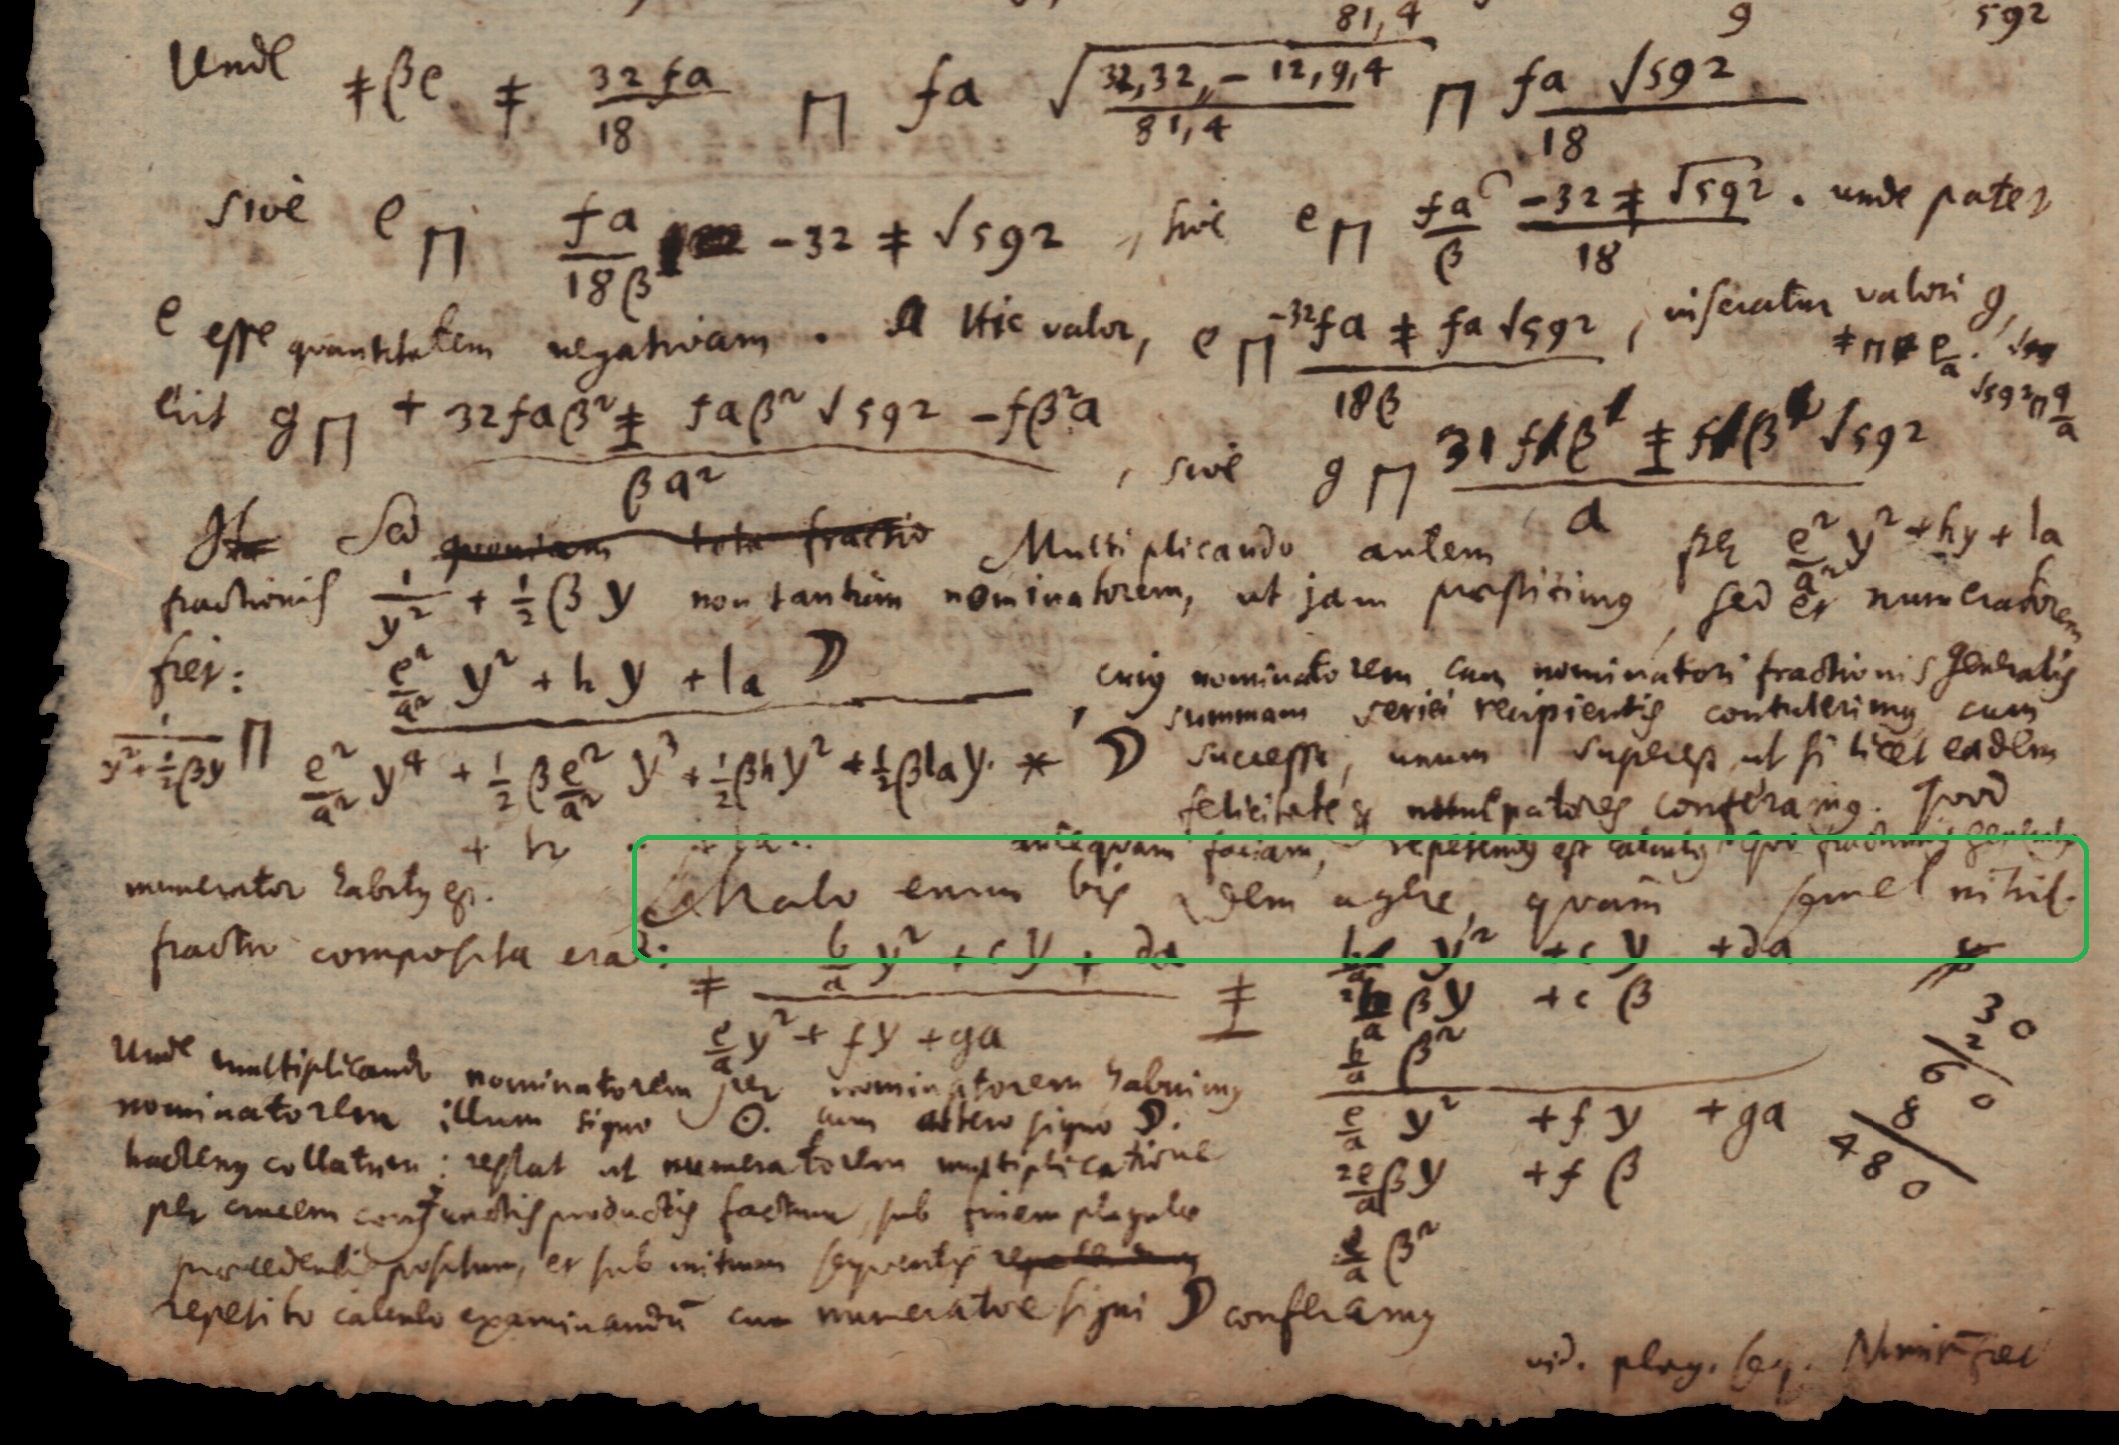 81,4 9 592
Unde ǂ βe ǂ 32 fa / 18 ⊓ fa √ 32,32,, − 12,9,4 / 81,4 ⊓ fa √592 / 18
sive e ⊓ fa / 18β −32 ǂ √592 , sive e ⊓ fa / β ⌒ −32 ǂ √592 / 18 . unde patet
e esse quantitatem negativam. Hic valor, e ⊓ −32fa ǂ fa √592 / 18β , inseratur valori g,
ǂ ⊓ e / a . √592 ⊓ q / a
fiet g ⊓ + 32faβ² ǂ faβ² √592 − fβ²a / βa² , sive g ⊓ 31 fβ ǂ fβ √592 / a
Sed quoniam tota fractio Multiplicando autem per e²/a² y² + hy + la
fractionis 1 / y² + ½ β y non tantum nominatorem, ut jam praestitimus, sed et numeratorem
fiet: e²/a² y² + h y + la ☽ , cujus nominatorem cum nominatori fractionis generalis
summam seriei recipientis contulerimus cum
1 / y² + ½βy ⊓ e²/a² y⁴ + ½ β e²/a² y³ + ½βhy² + ½βlay. * ☽ successu, unum superest ut si licet eadem
felicitate et numeratores conferamus. Quod
+ h .. + la .. antequam faciam, repetendus est calculus quo fractionis generalis
numerator habitus est. Malo enim bis idem agere, quam semel nihil.
fractio composita erat: ǂ b/a y² + cy + da / e/a y² + fy + ga ǂ b/a y² + c y + da
2b/a βy + c β
b/a β²
e/a y² + f y + ga
2e/a βy + f β
e/a β²
30
2
6 0
8
480
Unde multiplicando nominatorem per nominatorem habuimus
nominatorem illum signo ☉. cum altero signo ☽.
hactenus collatum: restat ut numeratorem multiplicatione
per crucem conjunctis productis factum, sub finem plagulae
praecedentis positum, et sub initium sequentis repetendum
repetito calculo examinandum cum numeratore signi ☽ conferamus
vid. plag. seq.